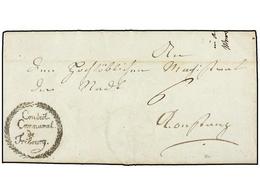 An
den Hochlöblichen Magistrat
der Stadt
6
Constanz
Conseil
Communal
de
Fribourg.